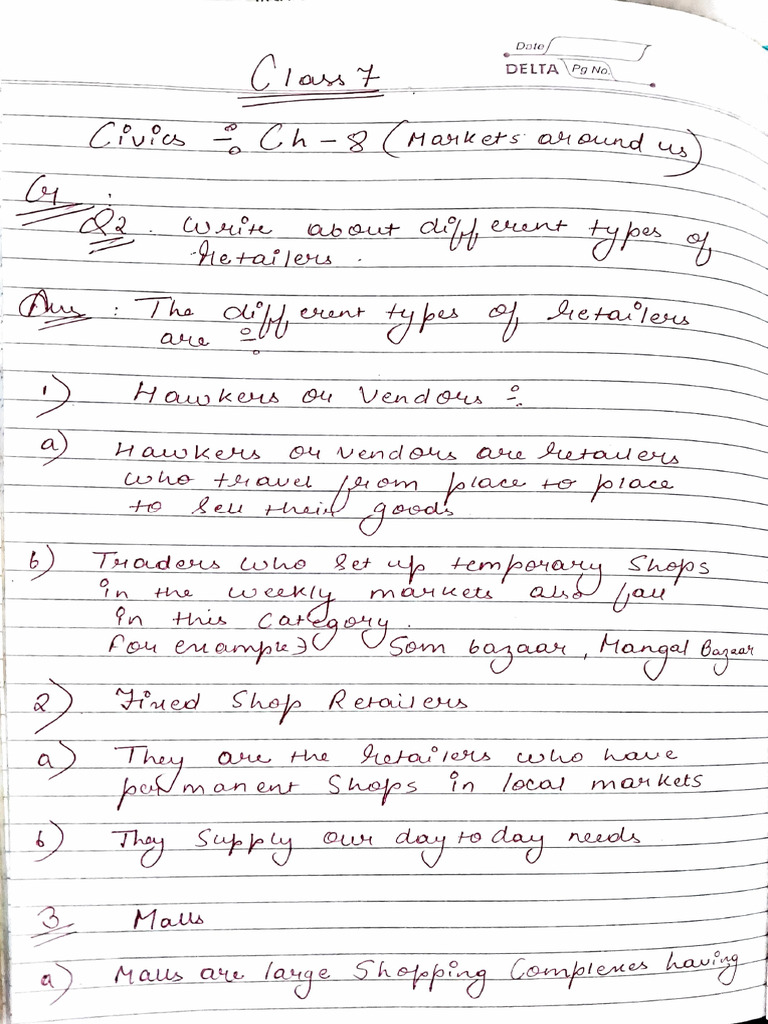 Date
DELTA Pg No.
Class 7
Civics ÷ Ch - 8 (Markets around us)
Q2. Write about different types of
retailers.
Ans : The different types of retailers
are ÷
1) Hawkers or Vendors ÷
a) Hawkers or vendors are retailers
who travel from place to place
to sell their goods
b) Traders who set up temporary shops
in the weekly markets also fall
in this category.
For example Som bazaar, Mangal Bazaar
2) Fixed Shop Retailers
a) They are the retailers who have
permanent shops in local markets
b) They supply our day to day needs
3 Malls
a) Malls are large Shopping Complexes having